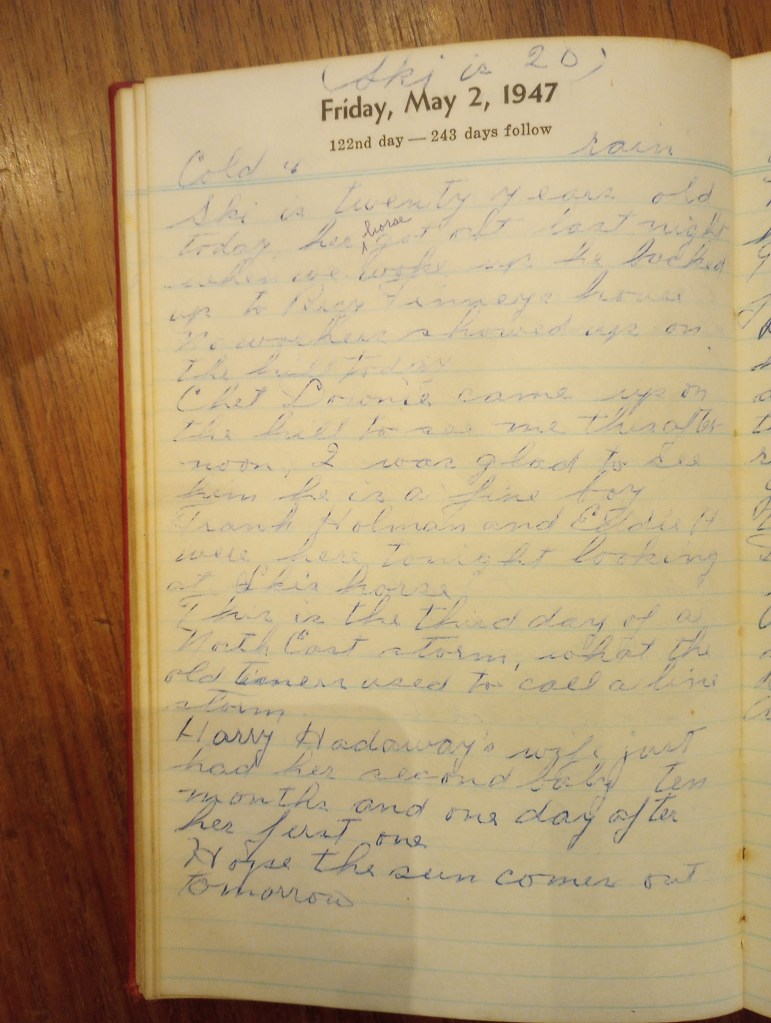 (Ski is 20)
Friday, May 2, 1947
122nd day — 243 days follow
Cold " rain
Ski is twenty years old
today, her horse got out last night
when we woke up he
up to Finneys house
No workers showed up on
the hill today
Chet Downie came up on
the hill to see me this after
noon, I was glad to see
him he is a fine boy
Frank Holman and Eddie H
were here tonight looking
at Ski's horse
This is the third day of a
North East storm, what the
old timers used to call a line
storm
Harry Hadaway's wife just
had her second baby ten
months and one day after
her first one
Hope the sun comes out
tomorrow